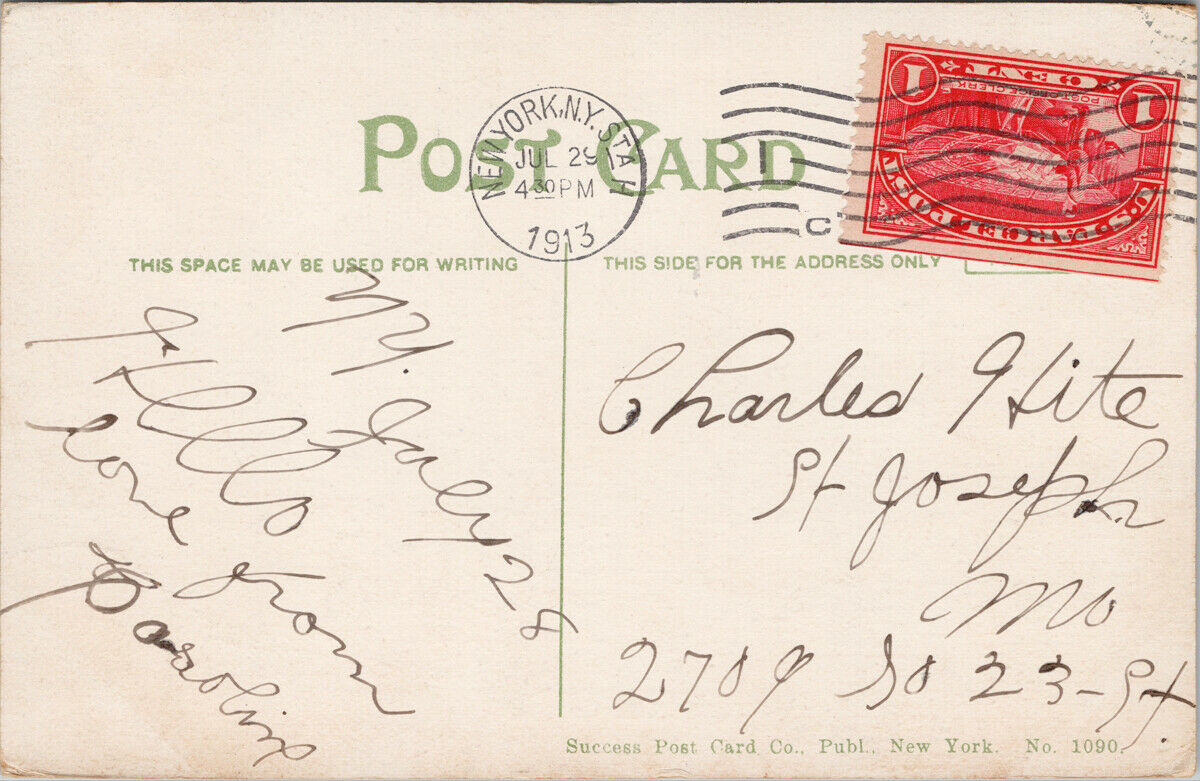 POST CARD
NEW YORK, N.Y. STA. H
JUL 29
4 30 PM
1913
1
C
U.S. PARCEL POST
POST OFFICE CLERK
1 CENT 1
THIS SPACE MAY BE USED FOR WRITING
THIS SIDE FOR THE ADDRESS ONLY
NY. July 28
Hello
Love from
Charles Hite
St Joseph
Mo
2709 So 23-St.
Success Post Card Co., Publ., New York. No. 1090.